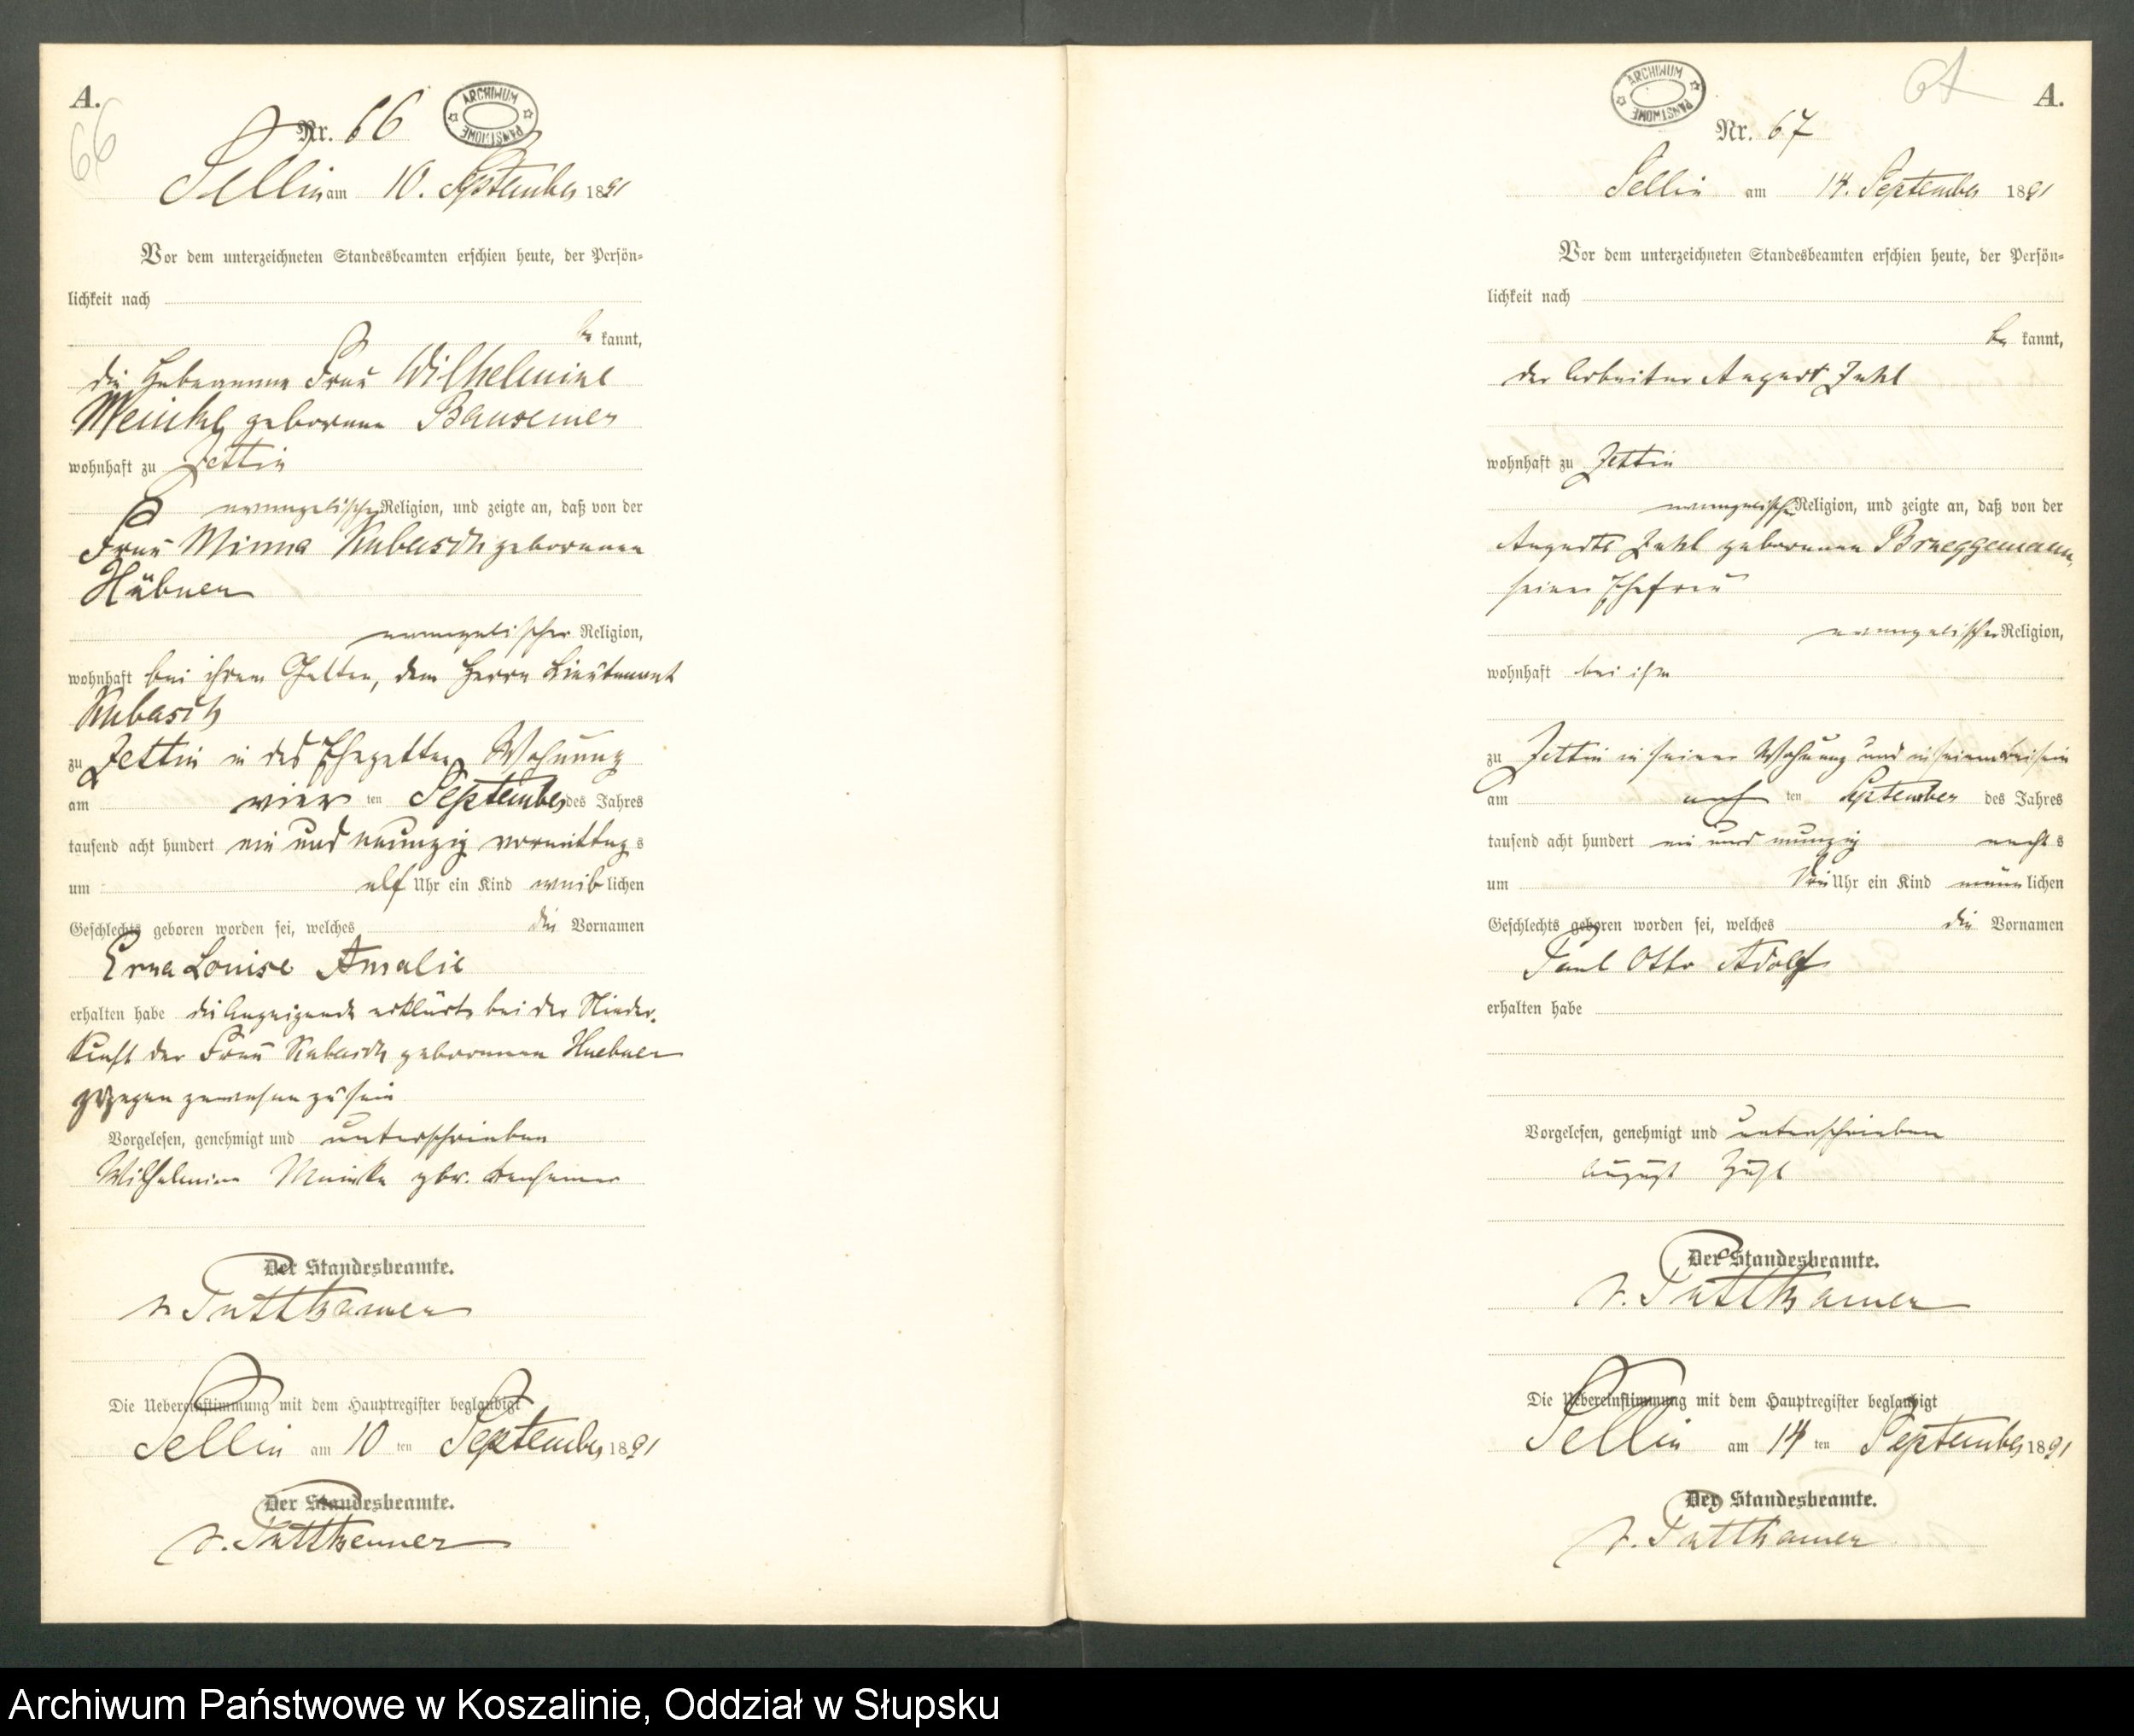 A.
66
Nr. 66
ARCHIWUM PAŃSTWOWE
Sellin am 10. September 1891
Vor dem unterzeichneten Standesbeamten erschien heute, der Persön-
lichkeit nach
be kannt,
die Hebeamme Frau Wilhelmine
Meinke geborene Bausemer
wohnhaft zu Zettin
evangelischer Religion, und zeigte an, daß von der
Frau Minna Kubasch geborenen
Hübner
evangelischer Religion,
wohnhaft bei ihrem Gatten, dem Herrn Lieutenant
Kubasch
zu Zettin in des Ehegatten Wohnung
am vier ten September des Jahres
tausend acht hundert ein und neunzig vormittag s
um elf Uhr ein Kind weib lichen
Geschlechts geboren worden sei, welches die Vornamen
Erna Louise Amalie
erhalten habe die Anzeigende erklärte bei der Nieder-
kunft der Frau Kubasch geborenen Huebner
zugegen gewesen zu sein
Vorgelesen, genehmigt und unterschrieben
Wilhelmine Meinke gbr. Bausemer
Der Standesbeamte.
v. Puttkamer
Die Uebereinstimmung mit dem Hauptregister beglaubigt
Sellin am 10 ten September 1891
Der Standesbeamte.
v. Puttkamer
A.
67
ARCHIWUM PAŃSTWOWE
Nr. 67
Sellin am 14. September 1891
Vor dem unterzeichneten Standesbeamten erschien heute, der Persön-
lichkeit nach
be kannt,
der Arbeiter August Zuhl
wohnhaft zu Zettin
evangelischer Religion, und zeigte an, daß von der
Auguste Zuhl geborenen Brueggemann,
seiner Ehefrau
evangelischer Religion,
wohnhaft bei ihm
zu Zettin in seiner Wohnung und in seinem Beisein
am acht ten September des Jahres
tausend acht hundert ein und neunzig nacht s
um drei Uhr ein Kind männ lichen
Geschlechts geboren worden sei, welches die Vornamen
Paul Otto Adolf
erhalten habe
Vorgelesen, genehmigt und unterschrieben
August Zuhl
Der Standesbeamte.
v. Puttkamer
Die Uebereinstimmung mit dem Hauptregister beglaubigt
Sellin am 14 ten September 1891
Der Standesbeamte.
v. Puttkamer
Archiwum Państwowe w Koszalinie, Oddział w Słupsku